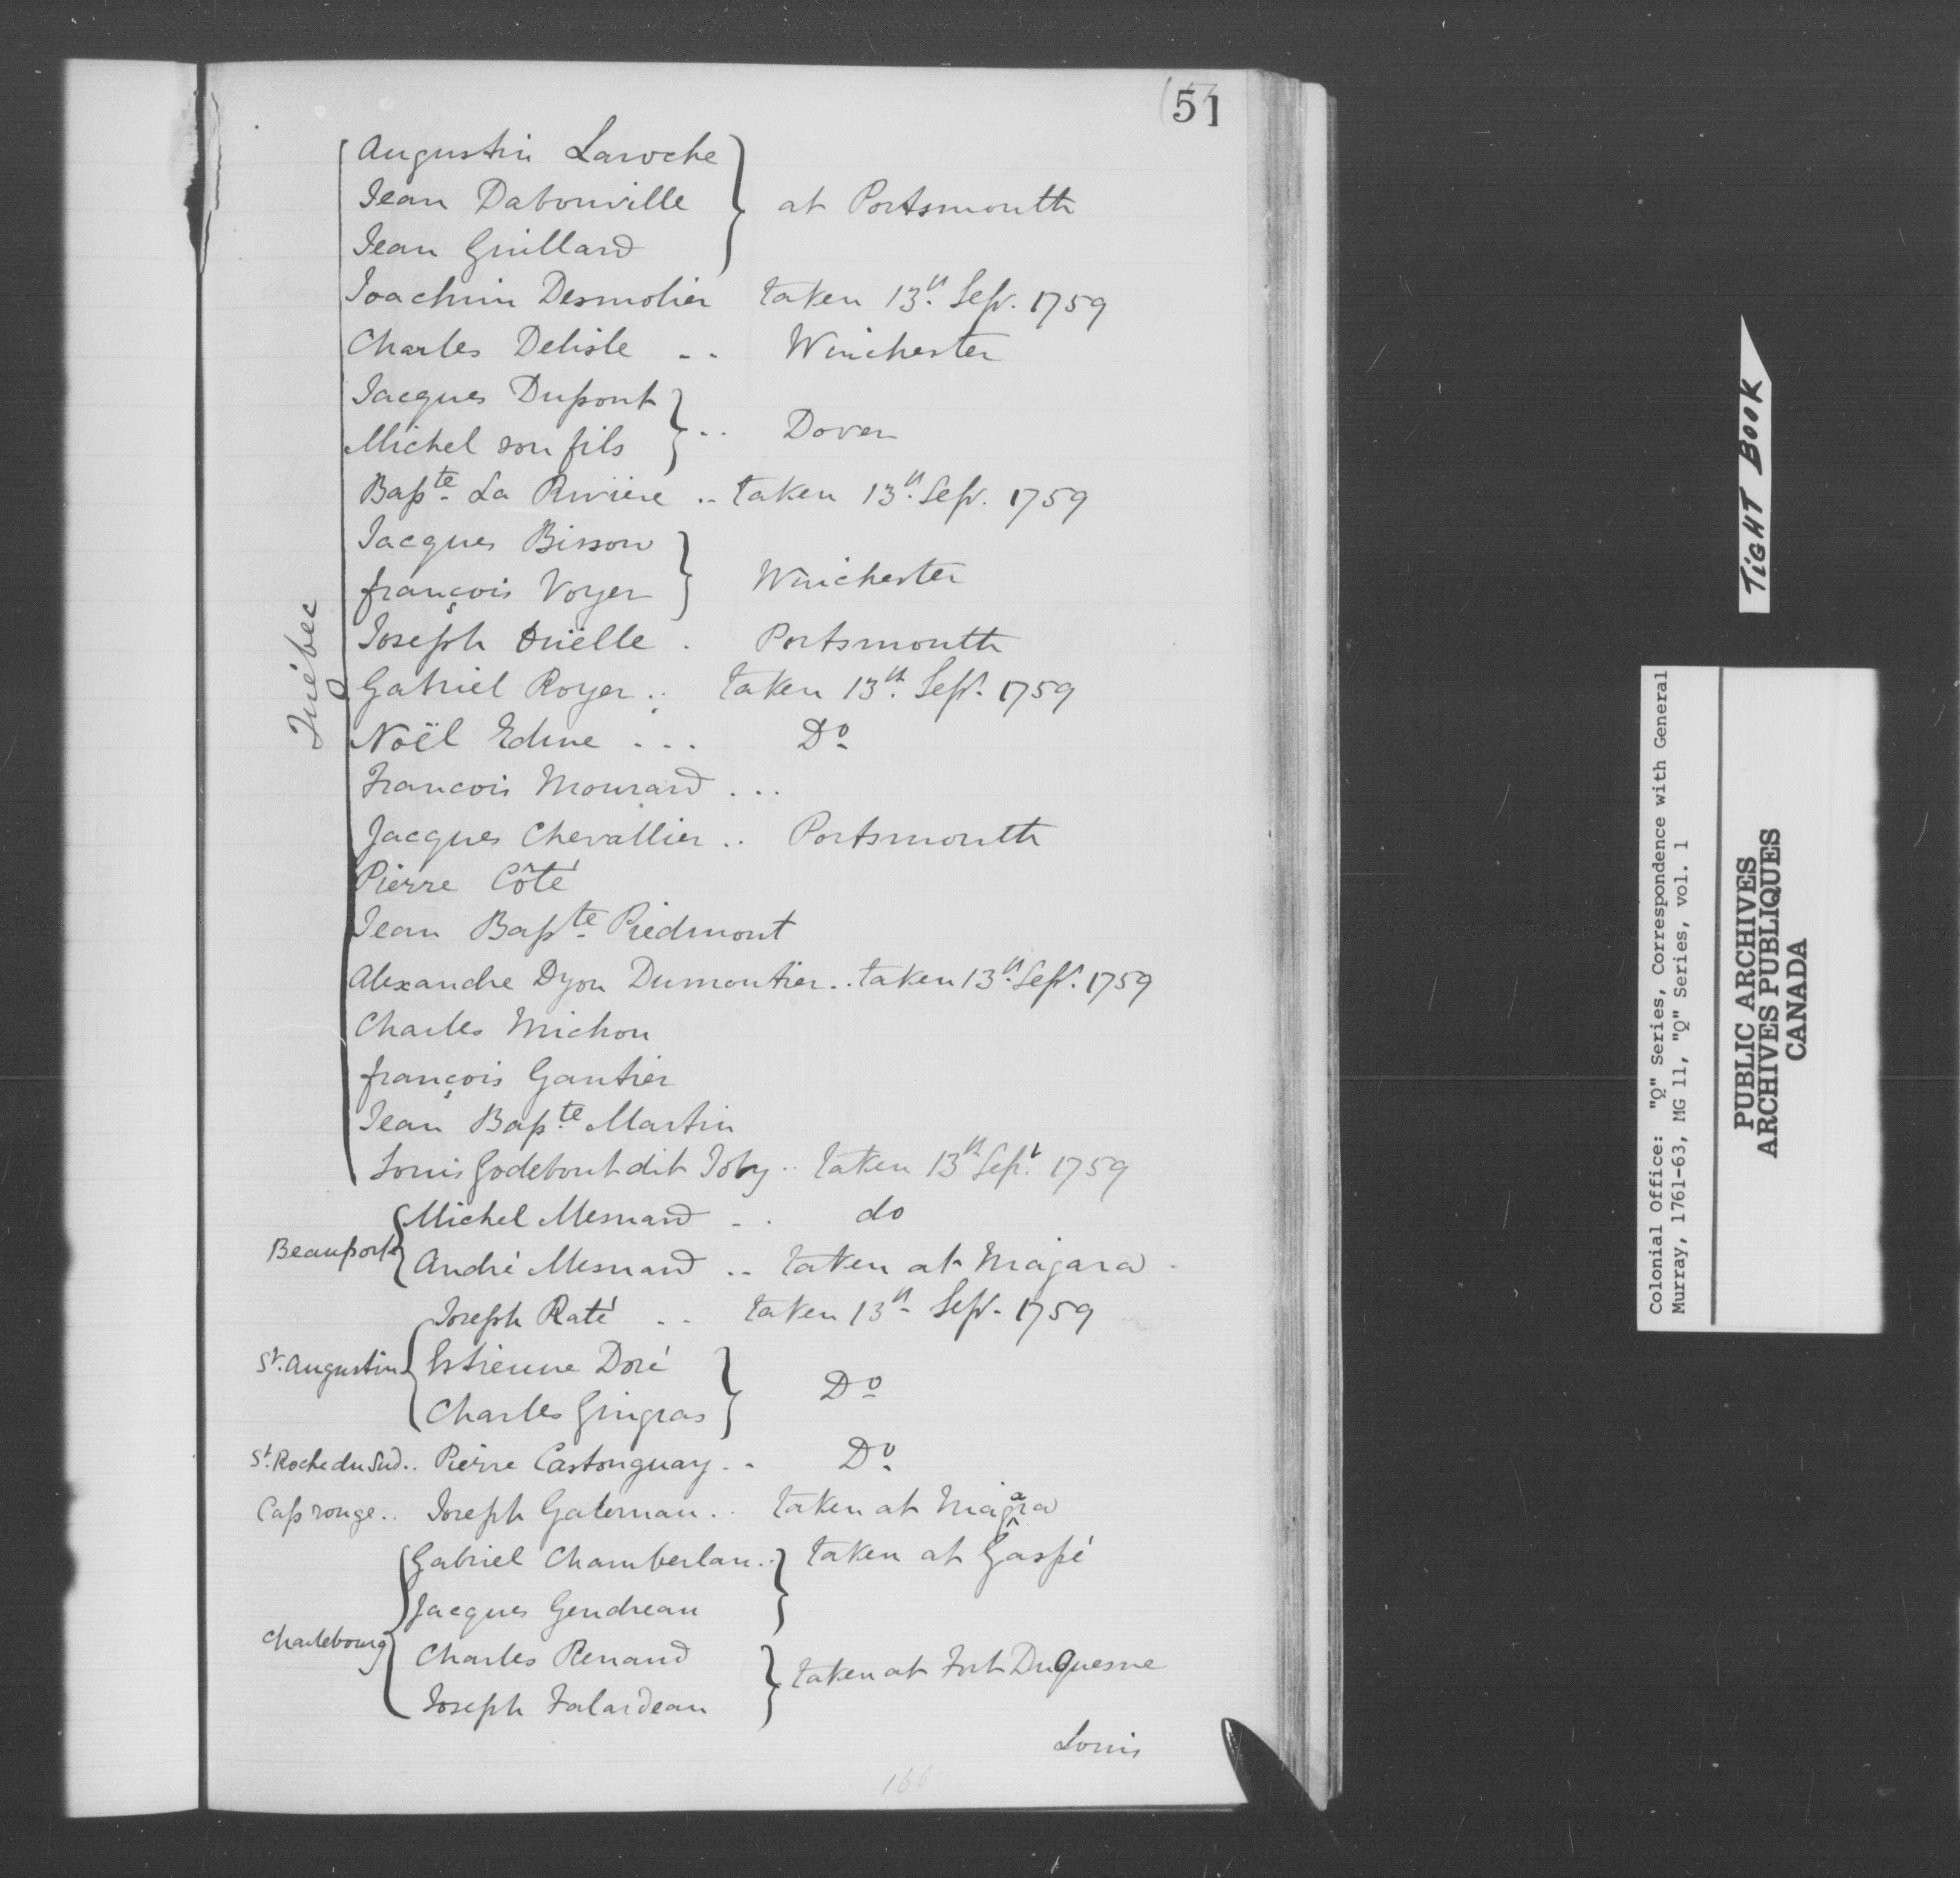 51
Augustin Laroche
Jean Dabonville } at Portsmouth
Jean Guillard
Joachim Desmolier taken 13th. Sept. 1759
Charles Delisle .. Winchester
Jacques Dupont
Michel son fils } .. Dover
Bapte. La Rivière .. taken 13th. Sept. 1759
Jacques Bisson
françois Voyer } Winchester
Joseph Duelle . Portsmouth
Québec
Gabriel Royer .. taken 13th. Sept. 1759
Noël Edme ... Do
Francois Mourard ...
Jacques Chevallier .. Portsmouth
Pierre Côté
Jean Bapte. Piedmont
Alexandre Dyon Dumontier .. taken 13th. Sept. 1759
Charles Michon
françois Gautier
Jean Bapte. Martin
Louis Godebout dit Joby .. taken 13th Sept. 1759
Michel Mesnard .. do
Beauport { André Mesnard .. taken at Niagara
Joseph Raté .. taken 13th Sept. 1759
St. Augustin { Estienne Doré
Charles Gingras } Do
St. Roche du Sud .. Pierre Castonguay .. Do
Cap rouge .. Joseph Gaternau .. taken at Niagara
Gabriel Chamberlan .. } taken at Gaspé
Jacques Gendreau
Charlebourg { Charles Renaud
Joseph Falardeau } taken at Fort DuQuesne
Louis
166
TIGHT BOOK
Colonial Office: "Q" Series, Correspondence with General
Murray, 1761-63, MG 11, "Q" Series, vol. 1
PUBLIC ARCHIVES
ARCHIVES PUBLIQUES
CANADA